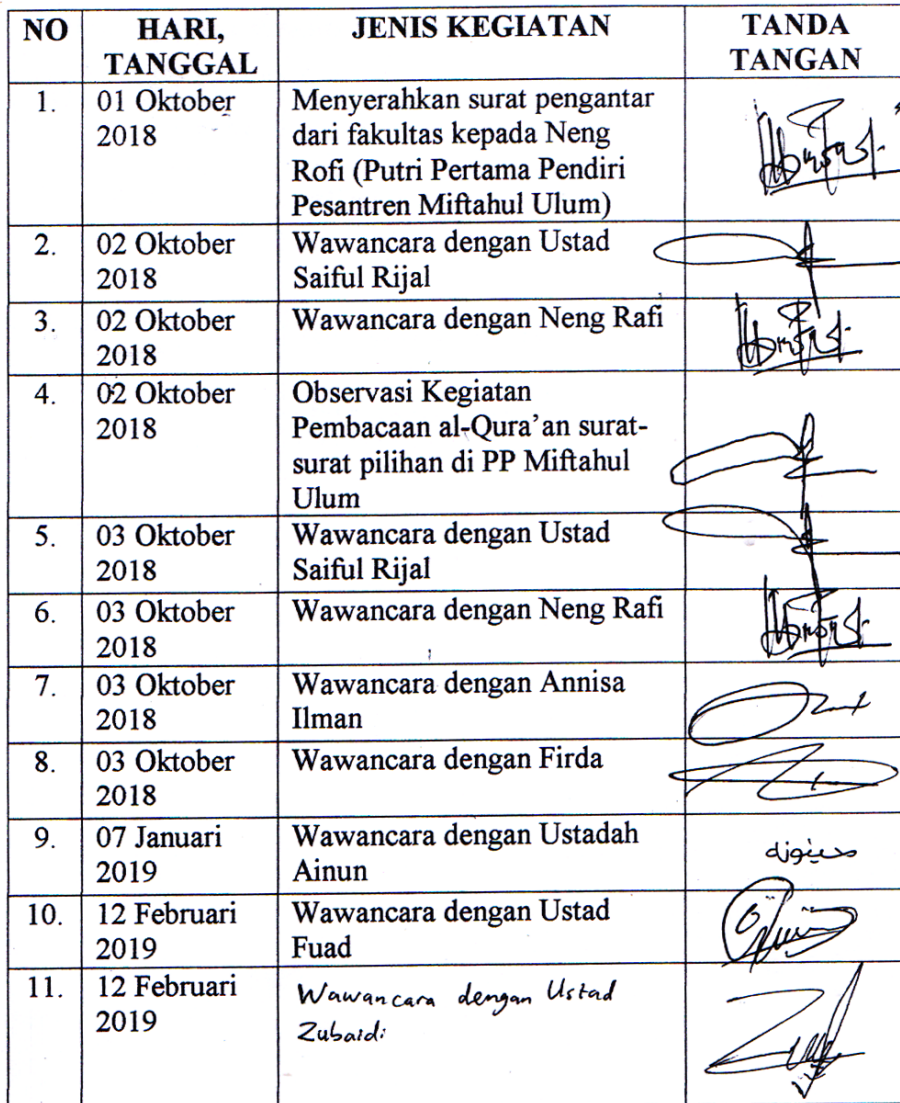 NO HARI, TANGGAL JENIS KEGIATAN TANDA TANGAN
1. 01 Oktober Menyerahkan surat pengantar
2018 dari fakultas kepada Neng
Rofi (Putri Pertama Pendiri
Pesantren Miftahul Ulum)
2. 02 Oktober Wawancara dengan Ustad
2018 Saiful Rijal
3. 02 Oktober Wawancara dengan Neng Rafi
2018
4. 02 Oktober Observasi Kegiatan
2018 Pembacaan al-Qura’an surat-
surat pilihan di PP Miftahul
Ulum
5. 03 Oktober Wawancara dengan Ustad
2018 Saiful Rijal
6. 03 Oktober Wawancara dengan Neng Rafi
2018
7. 03 Oktober Wawancara dengan Annisa
2018 Ilman
8. 03 Oktober Wawancara dengan Firda
2018
9. 07 Januari Wawancara dengan Ustadah
2019 Ainun
10. 12 Februari Wawancara dengan Ustad
2019 Fuad
11. 12 Februari Wawancara dengan Ustad
2019 Zubaidi